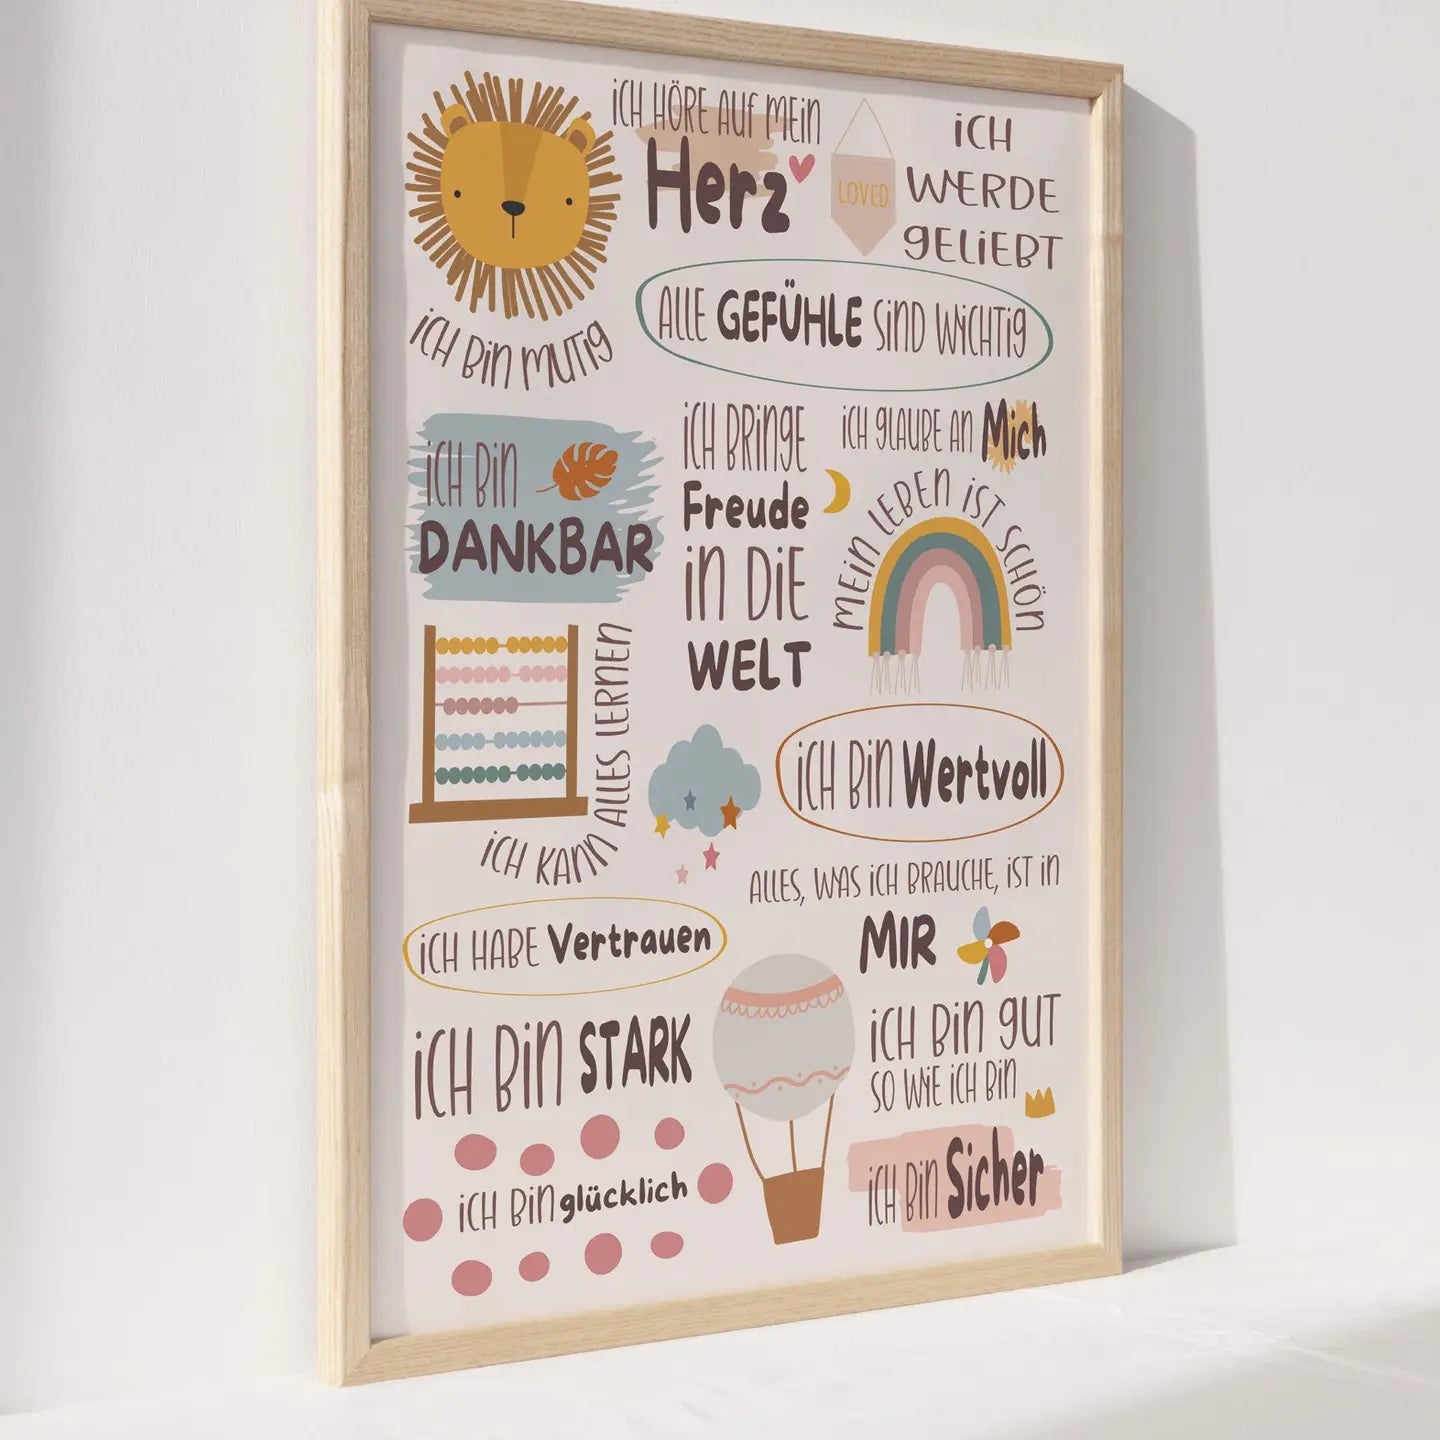 iCH HÖRE AUF MEiN
Herz
LOVED
iCH
WERDE
gELiEBT
iCH BiN MUTig
ALLE GEFÜHLE SiND WiCHTig
iCH BiN
DANKBAR
iCH BRiNgE
Freude
iN DiE
WELT
iCH gLAUBE AN Mich
MEiN LEBEN iST SCHÖN
iCH KANN ALLES LERNEN
iCH BiN Wertvoll
ALLES, WAS iCH BRAUCHE, iST iN
MIR
iCH HABE Vertrauen
iCH BiN STARK
iCH BiN gUT
SO WiE iCH BiN
iCH BiN glücklich
iCH BiN Sicher